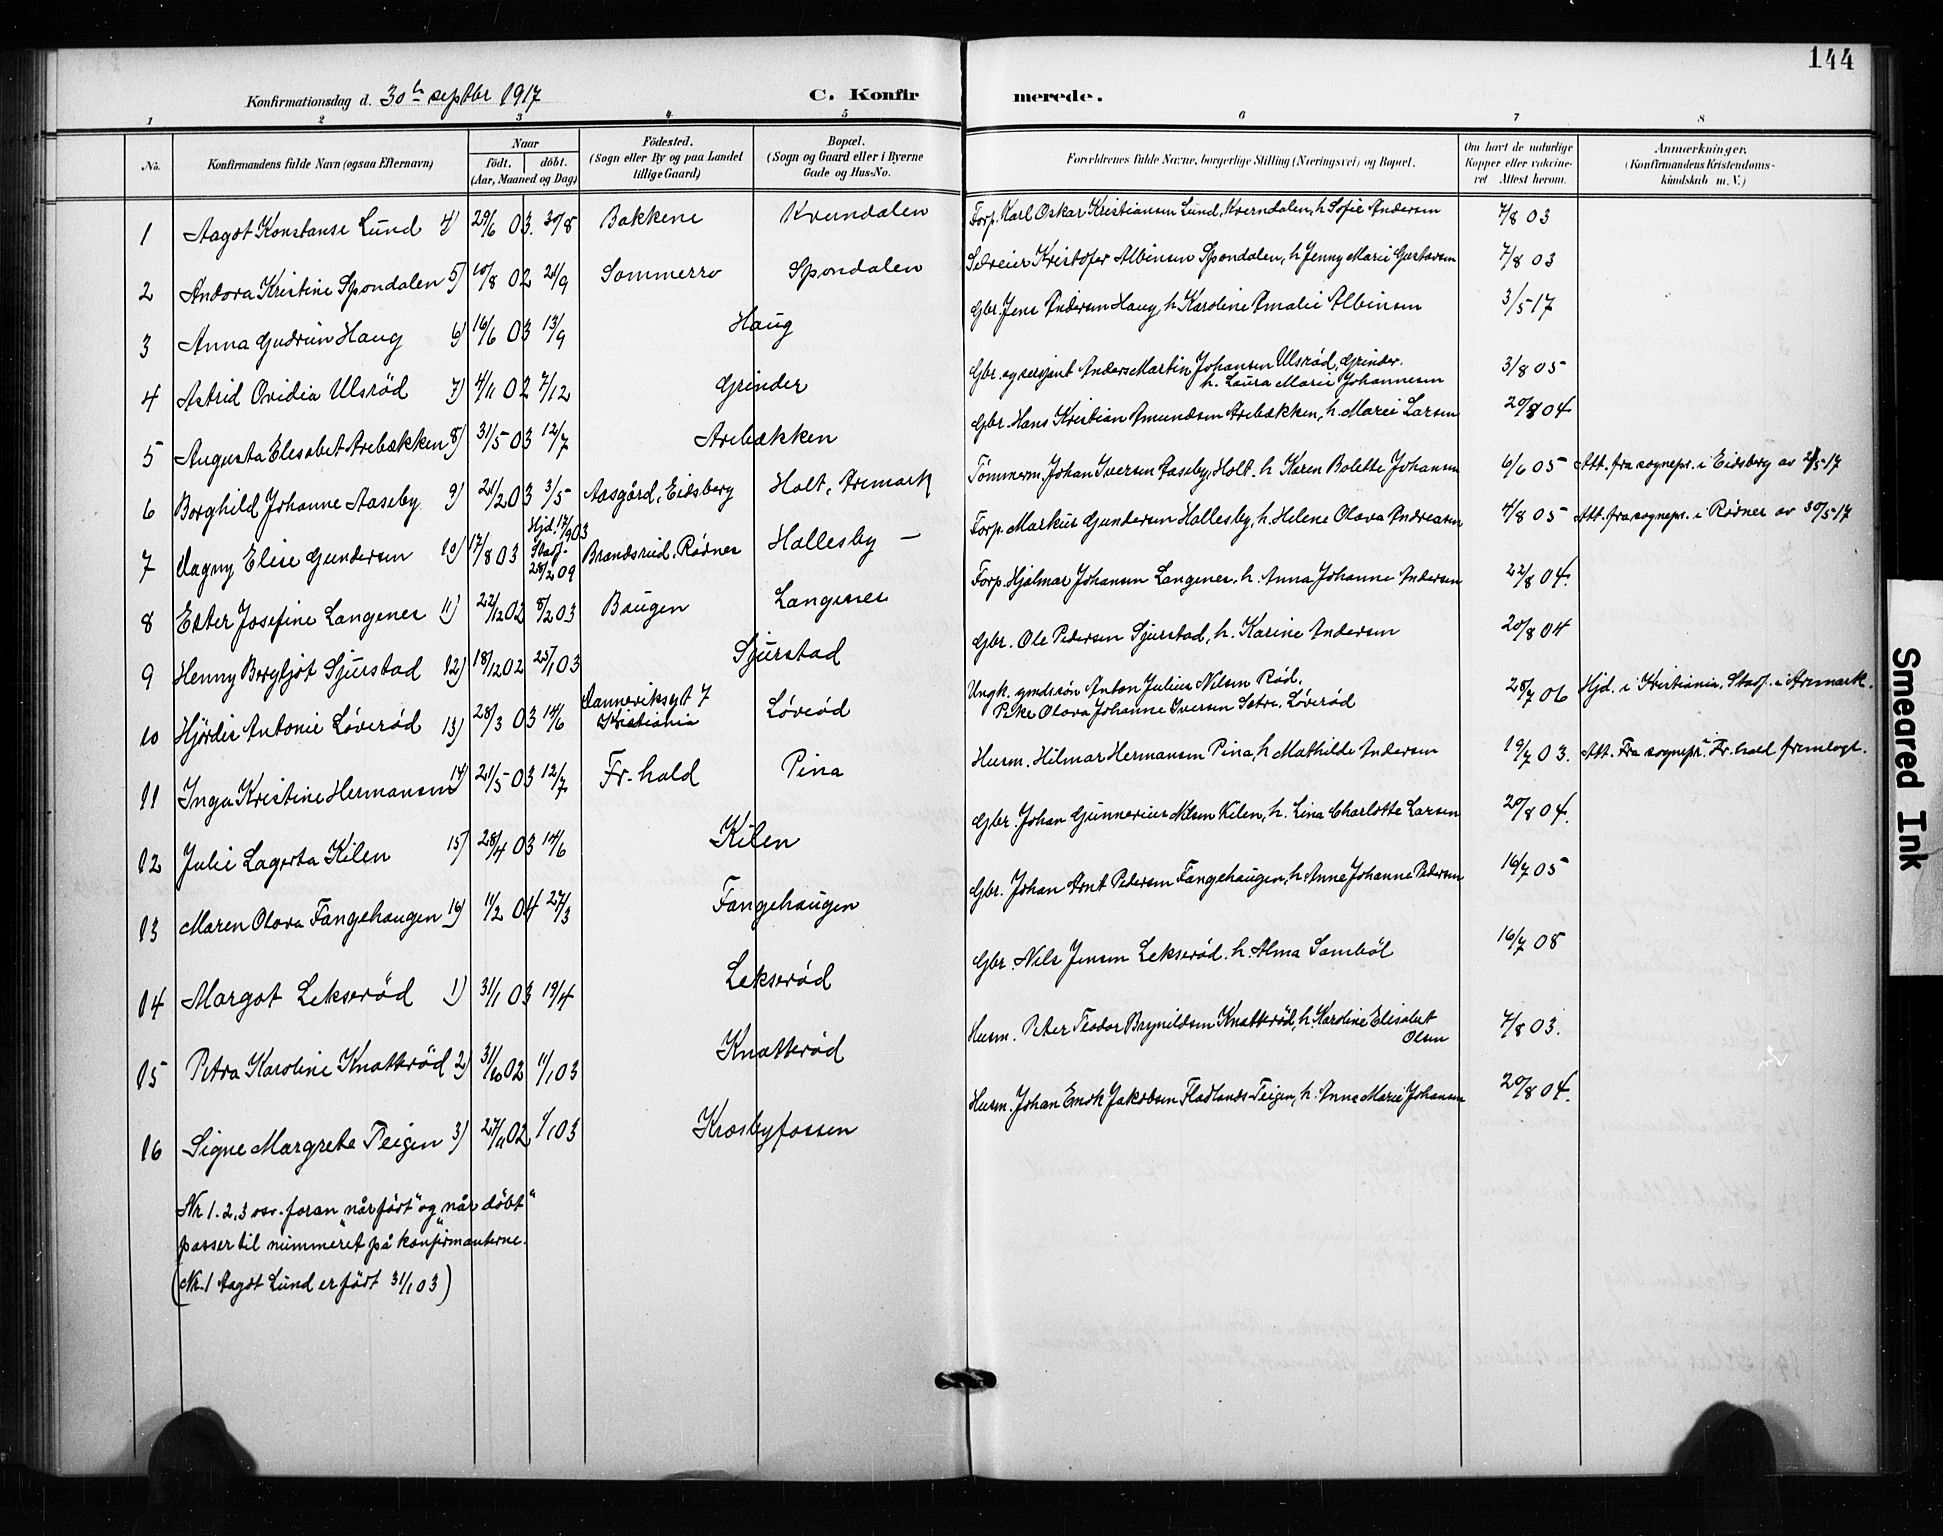 144
Konfirmationsdag d. 30te septbr 1917 C. Konfirmerede.
1 2 3 4 5 6 7 8
No. Konfirmandens fulde Navn (ogsaa Efternavn) Naar födt, döbt. (Aar, Maaned og Dag) Födested. (Sogn eller By og paa Landet tillige Gaard) Bopæl. (Sogn og Gaard eller i Byerne Gade og Hus-No. Forældrenes fulde Navne, borgerlige Stilling (Næringsvei) og Bopæl. Om havt de naturlige Kopper eller vakcineret Attest herom. Anmærkninger, (Konfirmandens Kristendomskundskab m. V.)
1 Aagot Konstanse Lund 4) 29/6 03. 30/8 Bakkene Kverndalen Forp. Karl Oskar Kristiansen Lund, Kverndalen, h Sofie Andersen 7/8 03
2 Andora Kristine Spondalen 5) 10/8 02 21/9 Sommerro Spondalen Selveier Kristofer Albinsen Spondalen, h Jenny Marie Gustavsen 7/8 03
3 Anna Gudrun Haug 6) 16/6 03 13/9 Haug Gbr. Jens Andersen Haug, h Karoline Amalie Albinsen 3/5 17
4 Astrid Ovidia Ulsrød 7) 4/11 02 7/12 Grinder Gbr. og sersjant Anders Martin Johansen Ulsrød, Grinder.
h. Laura Marie Johannesen 3/8 05
5 Augusta Elesabet Arebækken 8) 31/5 03 12/7 Arebækken Gbr. Hans Kristian Amundsen Arebækken, h. Marie Larsen 20/8 04
6 Borghild Johanne Aaseby 9) 21/2 03 3/5 Aasgård, Eidsberg Holt, Aremark Tømmerm. Johan Iversen Aaseby, Holt. h. Karen Bolette Johansen 6/6 05 Att. fra sognepr. i Eidsberg av 21/5-17
7 Dagny Elise Gundersen 10) 17/8 03 Hjd. 17/9 03
Stadf. 28/2 09 Brandsrud, Rødnes Hallesby — Forp. Markus Gundersen Hallesby, h. Helene Olava Andreasen 4/8 05 Att. fra sognepr. i Rødnes av 30/5-17
8 Ester Josefine Langenes 11) 22/12 02 8/2 03 Baugen Langenes Forp. Hjalmar Johansen Langenes. h. Anna Johanne Andersen 22/8 04.
9 Henny Bergljot Sjurstad 12) 18/12 02 25/1 03 Sjurstad Gbr. Ole Pedersen Sjurstad, h. Karine Andersen 20/8 04
10 Hjördis Antonie Løverød 13) 28/3 03 14/6 Danneviksgt 7
Kristiania Løverød Ungk. gmdssøn Anton Julius Nilsen Rød.
Pike Olava Johanne Iversen Sætre. Løverød 28/7 06 Hjd. i Kristiania. Stadf. i Aremark.
11 Inga Kristine Hermansen 14) 21/5 03 12/7 Fr. hald Pina Husm. Hilmar Hermansen Pina, h Mathilde Andersen 19/7 03. Att. Fra sognepr. i Fr. hald fremlagt.
12 Julie Lagerta Kilen 15) 28/4 03 14/6 Kilen Gbr. Johan Gunnerius Nilsen Kilen, h. Lina Charlotte Larsen 20/8 04.
13 Maren Olava Fangehaugen 16) 11/2 04 27/3 Fangehaugen Gbr. Johan Arnt Pedersen Fangehaugen, h. Anne Johanne Pedersen 16/7 05
14 Margot Lekserød 1) 31/1 03 19/4 Lekserød Gbr. Nils Jensen Lekserød. h. Alma Sambøl 16/7 08
15 Petra Karoline Knatterød 2) 31/10 02 11/1 03 Knatterød Husm. Peter Teodor Brynildsen Knatterød, h. Karoline Elisabet
Olsen 7/8 03.
16 Signe Margrete Teigen 3) 27/11 02 1/1 03 Krosbyfossen Husm. Johan Emok Jakobsen Fladlands-Teigen, h. Anne Marie Johansen 20/8 04.
Nr. 1. 2, 3 osv. foran "når født" og "når döbt"
passer til nummeret på konfirmanterne.
(Nr. 1 Aagot Lund er født 31/1 03)
Smeared Ink